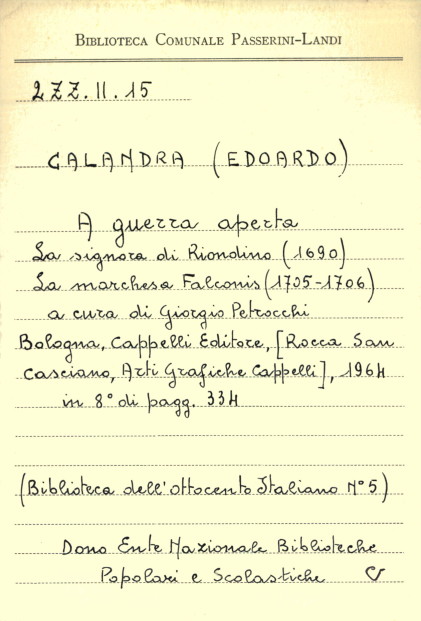 BIBLIOTECA COMUNALE PASSERINI-LANDI
2ZZ.II.15
CALANDRA (EDOARDO)
A guerra aperta
La signora di Riondino (1690)
La marchesa Falconis (1705-1706)
a cura di Giorgio Petrocchi
Bologna, Cappelli Editore, [Rocca San
Casciano, Arti Grafiche Cappelli], 1964
in 8° di pagg. 334
(Biblioteca dell'Ottocento Italiano N° 5)
Dono Ente Nazionale Biblioteche
Popolari e Scolastiche